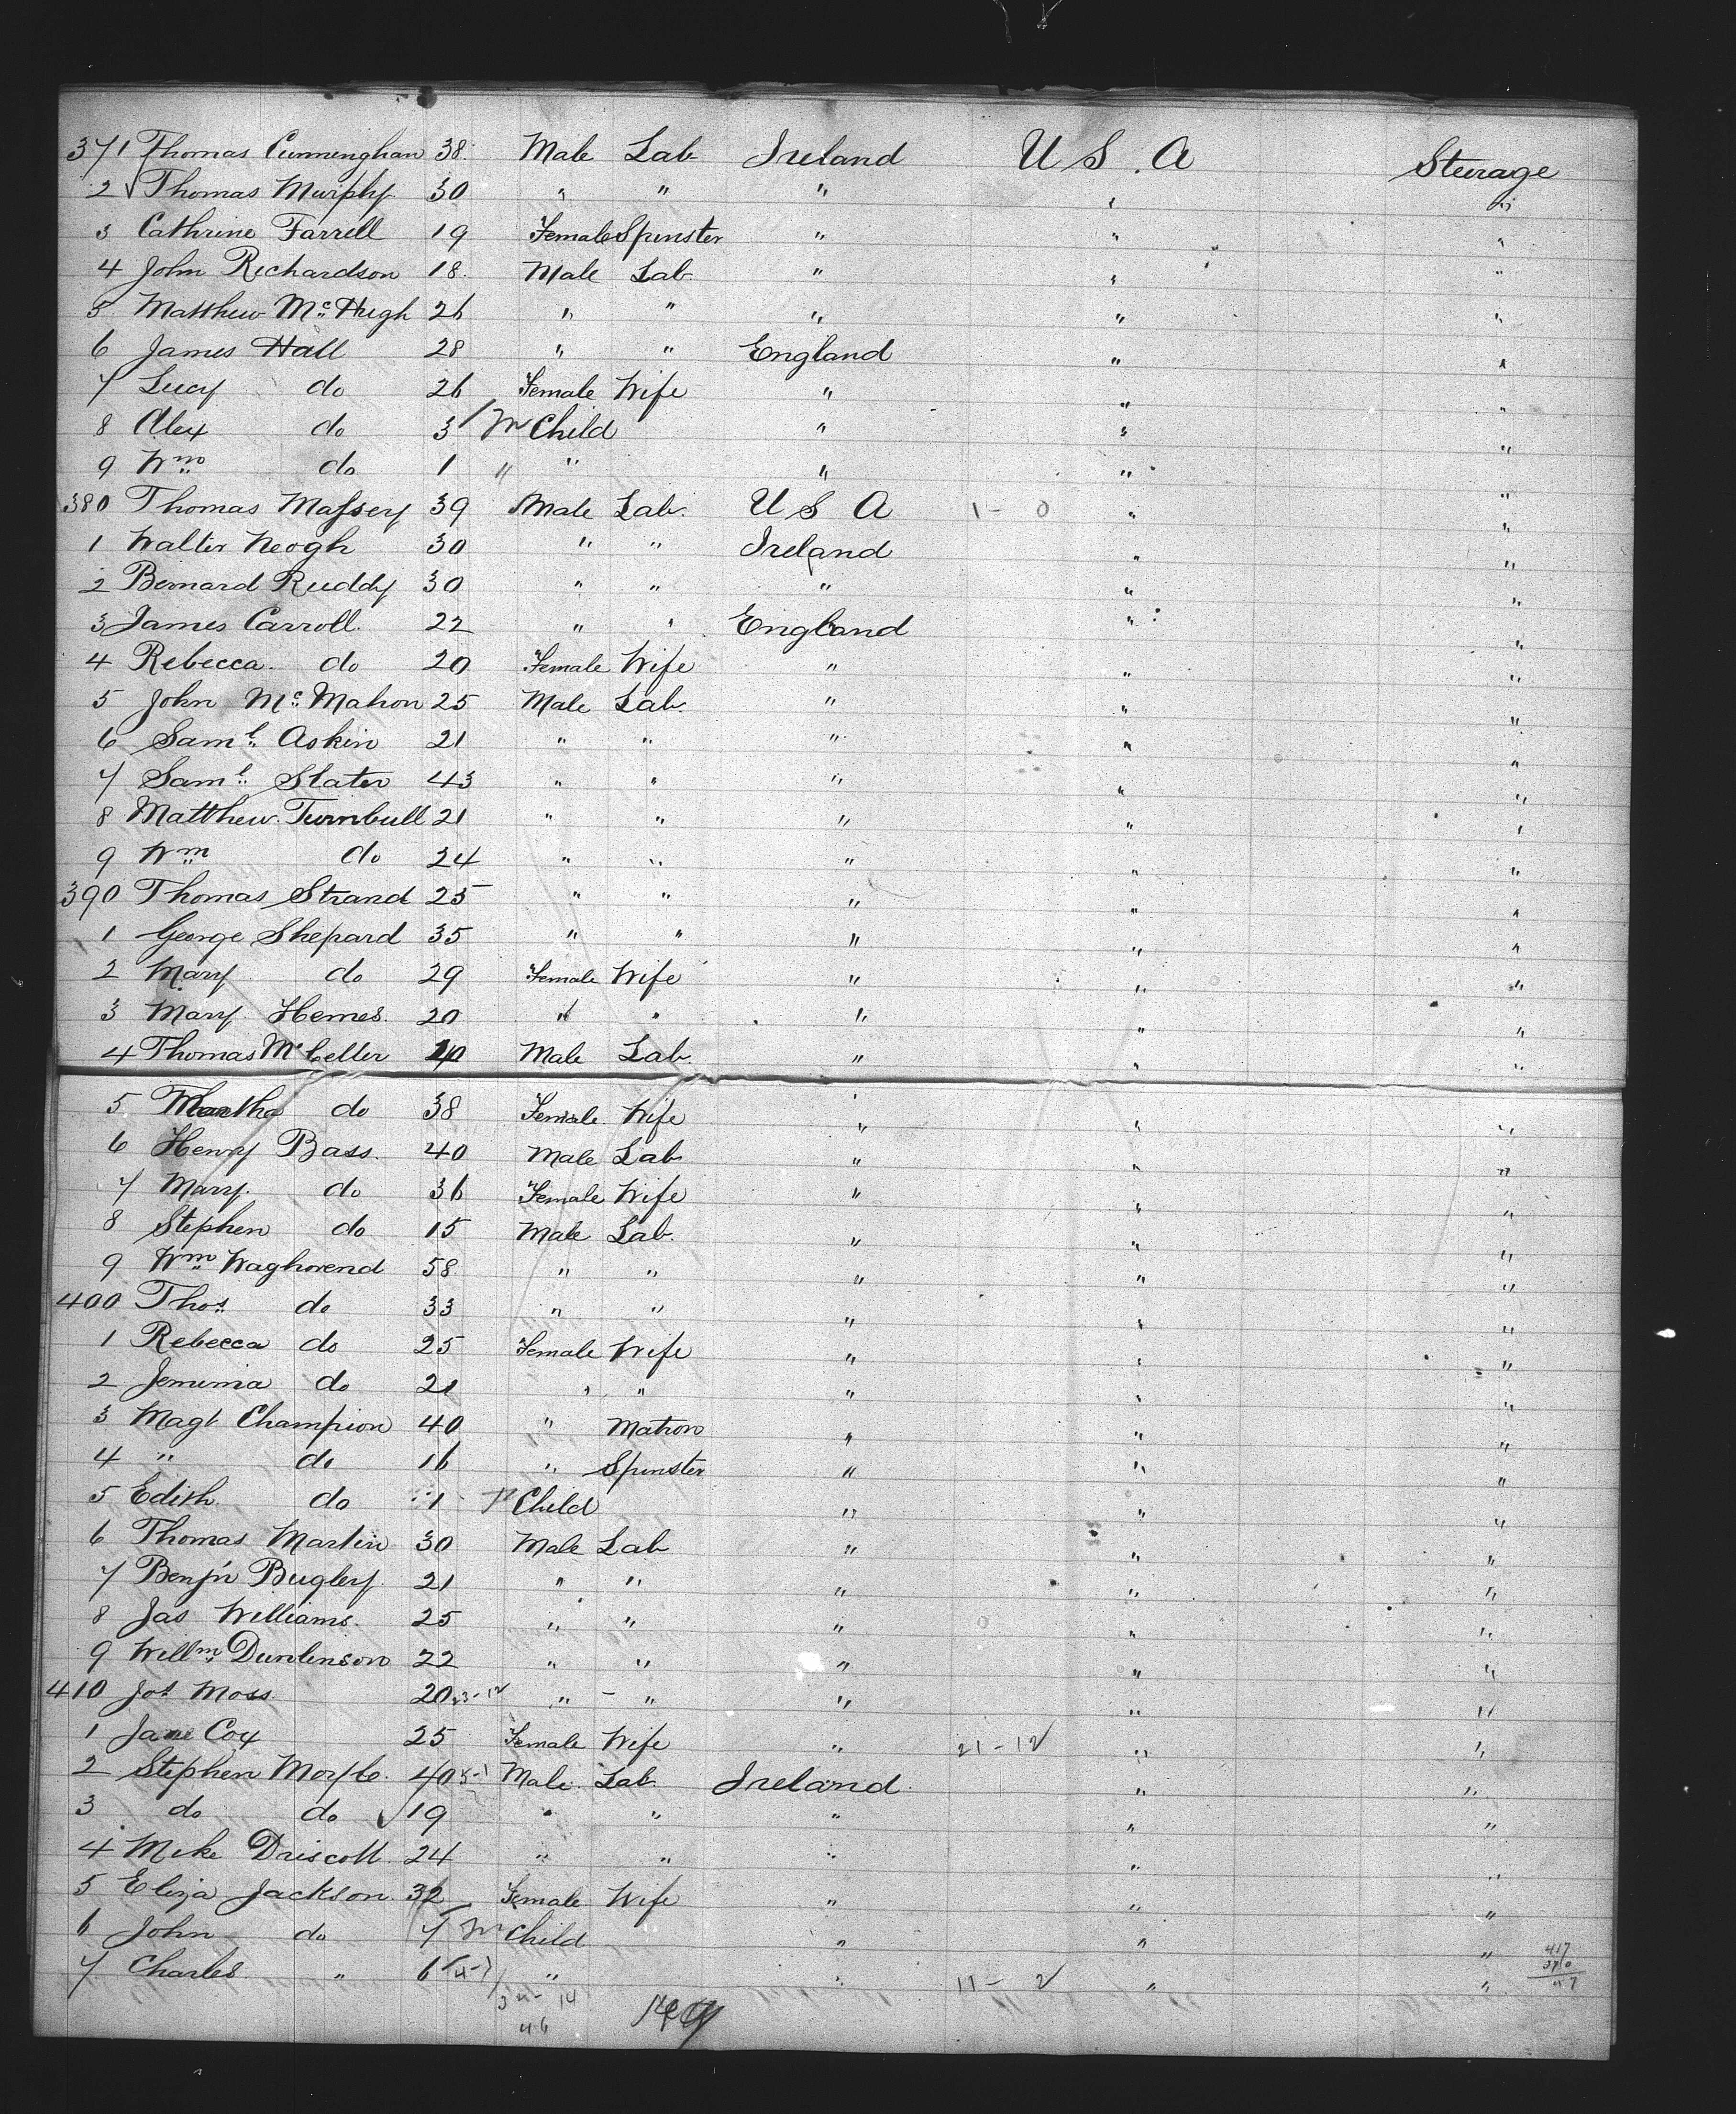 371 Thomas Cunninghan 38. Male Lab Ireland U S. A Sturage
2 √ Thomas Murphy. 30 " " " " "
3 Cathrine Farrell 19 Female Spinster " " "
4 John Richardson 18. Male Lab. " " "
5 Matthew Mc. Hugh 26 " " " " "
6 James Hall 28 " " England " "
7 Lucy do 26 Female Wife " " "
8 Alex do 3 m Child " " "
9 Wm do 1 " " " " "
380 Thomas Massey 39 Male Lab. U S A 1 - 0 " "
1 Walter Neogh 30 " " Ireland " "
2 Bernard Ruddy 30 " " " " "
3 James Carroll. 22 " " England " "
4 Rebecca. do 20 Female Wife " " "
5 John Mc. Mahon 25 Male Lab. " " "
6 Saml. Askin 21 " " " " "
7 Saml. Slater 43 " " " " "
8 Matthew. Turnbull 21 " " " " "
9 Wm do 24 " " " " "
390 Thomas Strand 25 " " " " "
1 George Shepard 35 " " " " "
2 Mary do 29 Female Wife " " "
3 Mary Hemes. 20 " " " " "
4 Thomas Mc Celler 40 Male Lab. " " "
5 Martha do 38 Female. Wife " " "
6 Henry Bass. 40 Male Lab " " "
7 Mary. do 36 Female Wife " " "
8 Stephen do 15 Male Lab. " " "
9 Wm Waghorend 58 " " " " "
400 Thos. do 33 " " " " "
1 Rebecca do 25 Female Wife " " "
2 Jemima do 21 " " " " "
3 Magt Champion 40 " Matron " " "
4 " do 16 " Spinster " " "
5 Edith do 1 Child " " "
6 Thomas Martin 30 Male Lab " " "
7 Benj'n Bugley. 21 " " " " "
8 Jas Williams. 25 " " " " "
9 Willm. Dumlinson 22 " " " " "
410 Jos Moss 20 23-12 " - " " " "
1 Jane Cox 25 Female Wife " 21-12 " "
2 Stephen 40 5-1 Male. Lab. Ireland. " "
3 do do √ 19 " " " " "
4 Mike Driscoll. 24 " " " " "
5 Eliza Jackson. 32 Female Wife " " "
6 John do 7 m Child " " "
7 Charles. " 6 (4-) " " 11 - 2 " "
417
370
47
3 14
46
149